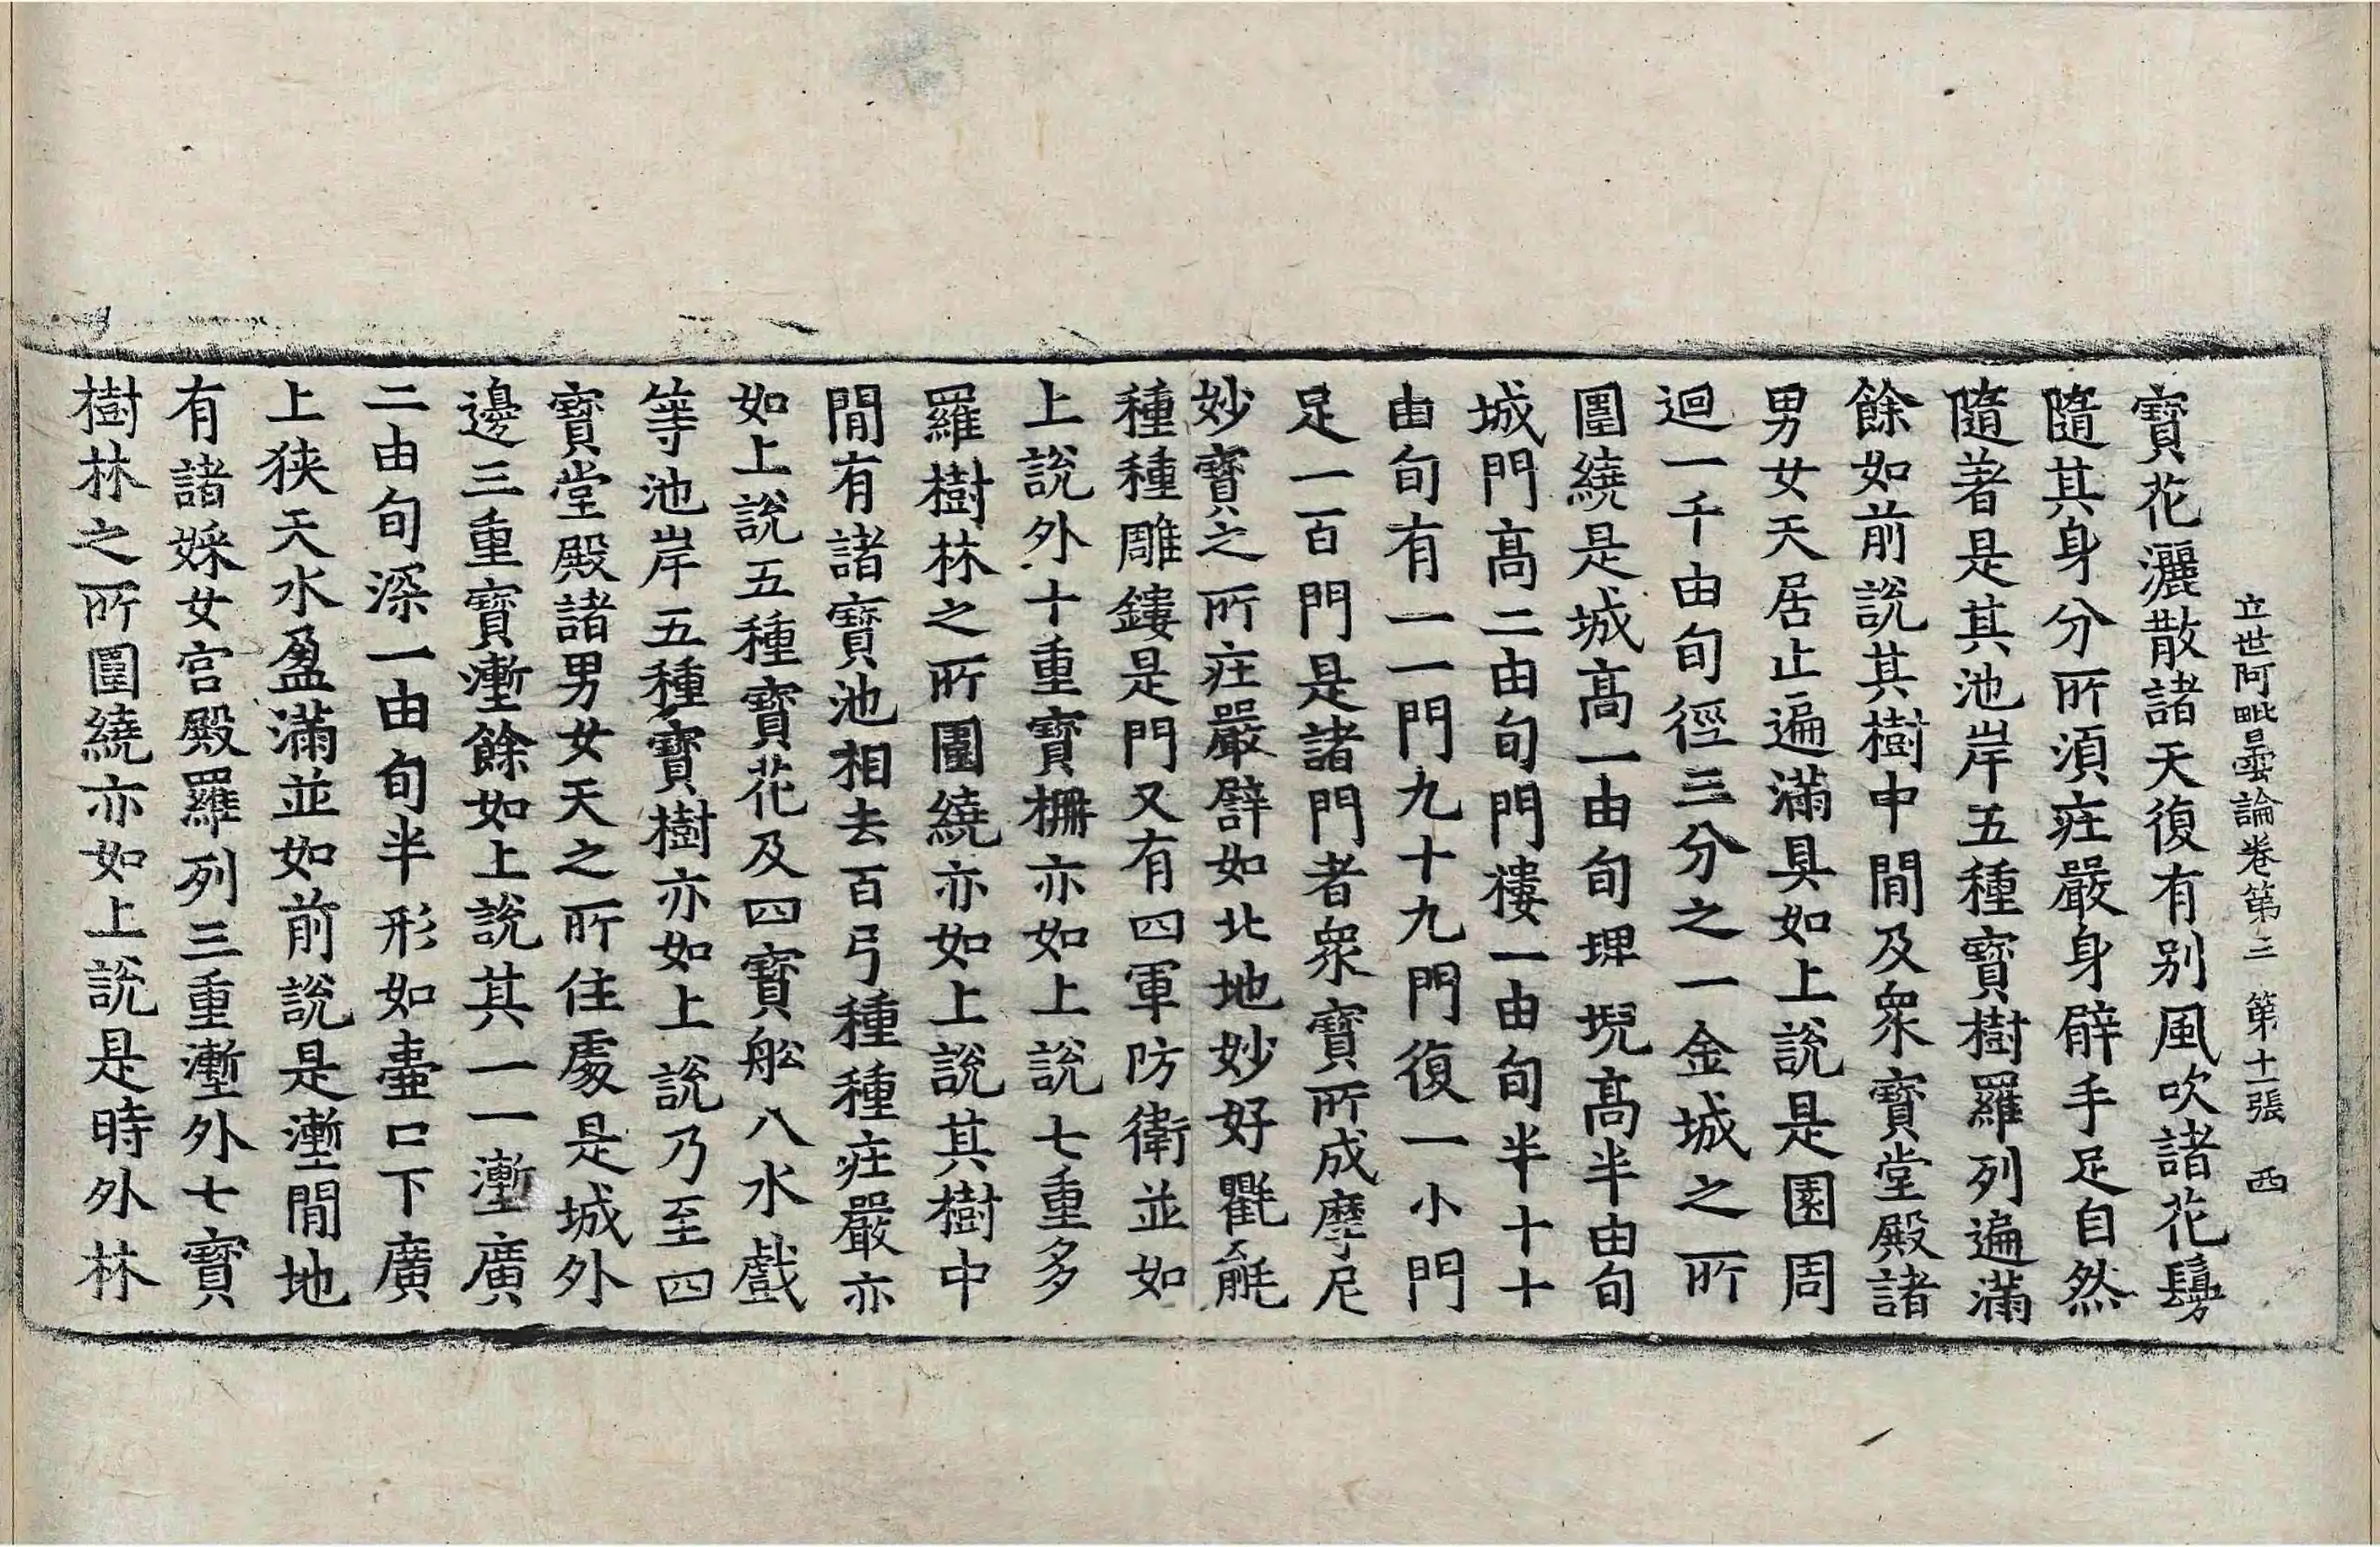 立世阿毗曇論卷第三 第十一張 西
寶花灑散諸天復有別風吹諸花鬘
隨其身分所須㽵嚴身臂手足自然
隨著是其池岸五種寶樹羅列遍滿
餘如前說其樹中閒及衆寶堂殿諸
男女天居止遍滿具如上說是園周
迴一千由旬徑三分之一金城之所
圍繞是城高一由旬埤堄高半由旬
城門高二由旬門樓一由旬半十十
由旬有一一門九十九門復一小門
足一百門是諸門者衆寶所成摩尼
妙寶之所㽵嚴譬如北地妙好氍毹
種種雕鏤是門又有四軍防衛並如
上說外十重寶柵亦如上說七重多
羅樹林之所圍繞亦如上說其樹中
閒有諸寶池相去百弓種種㽵嚴亦
如上說五種寶花及四寶舩八水戲
等池岸五種寶樹亦如上說乃至四
寶堂殿諸男女天之所住處是城外
邊三重寶壍餘如上說其一一壍廣
二由旬深一由旬半形如壷口下廣
上狹天水盈滿並如前說是壍閒地
有諸婇女宮殿羅列三重壍外七寶
樹林之所圍繞亦如上說是時外林